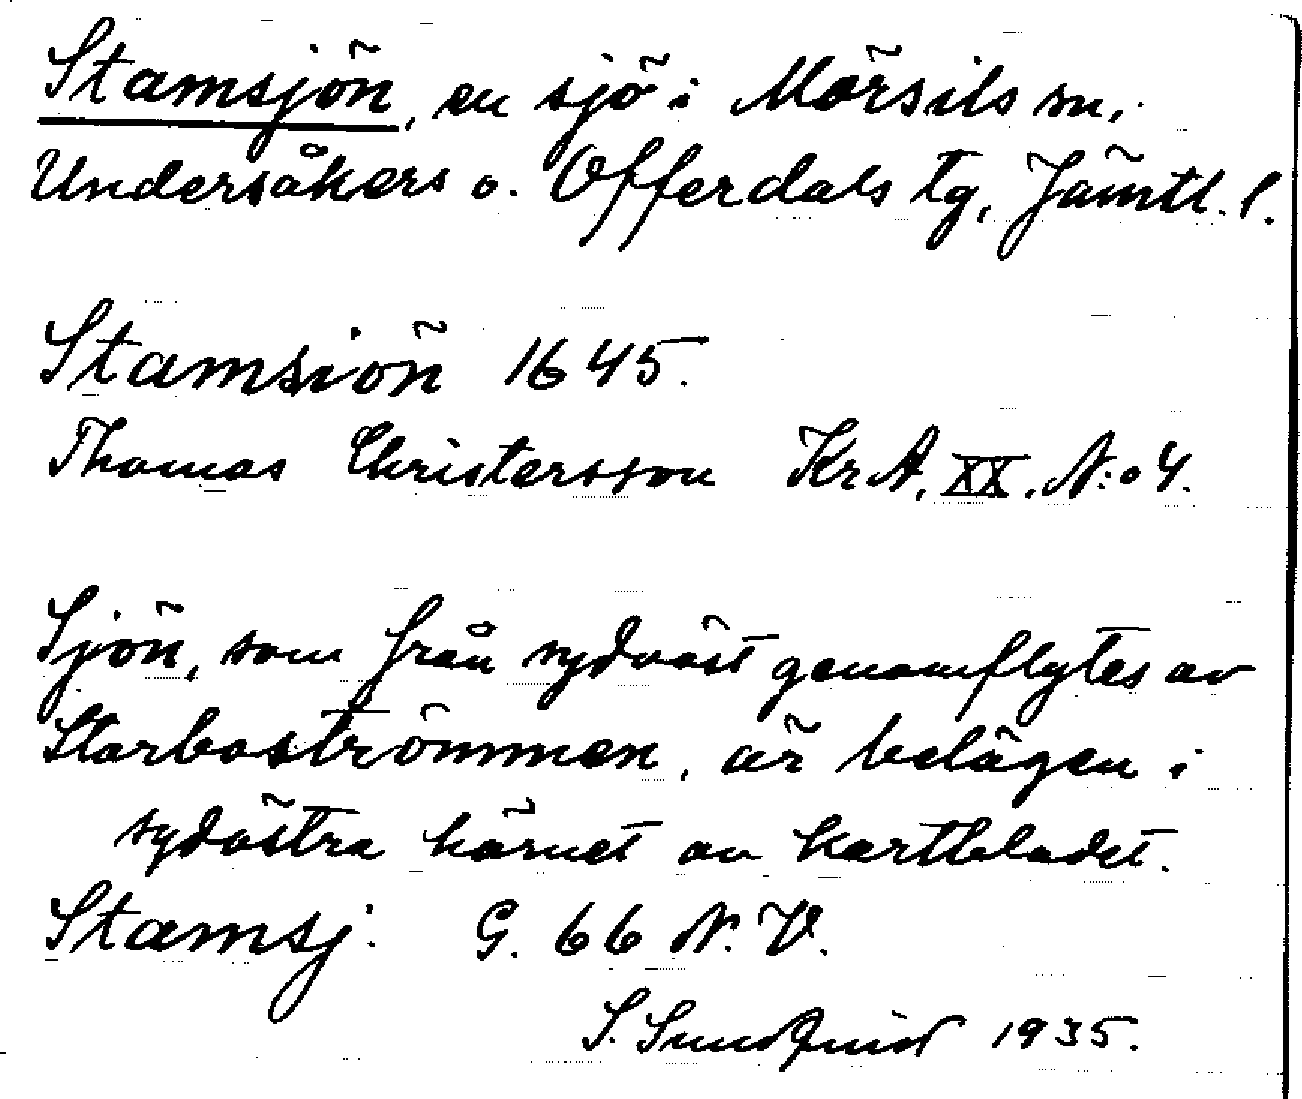 Stamsjön, en sjö i Mörsils sn,
Undersåkers o. Offerdals tg, Jämtl. l.
Stamsiön 1645.
Thomas Christersson KrA. XX. N:o 4.
Sjön, som från sydväst genomflytes av
Storboströmmen, är belägen i
sydöstra hörnet av kartbladet.
Stamsj. G. 66 N. V.
S. Sundquist 1935.